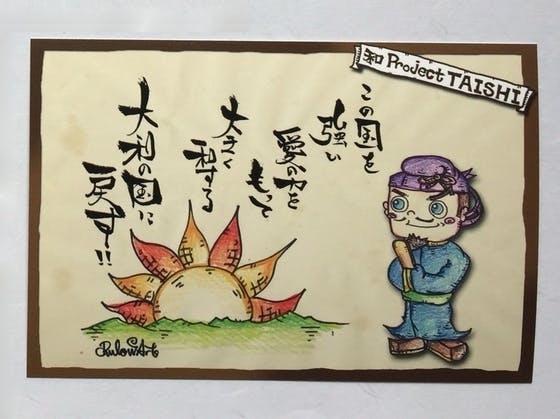 和 Project TAISHI
この国を
強い
愛の力を
もって
大きく
和する
大和の国に
戻す!!